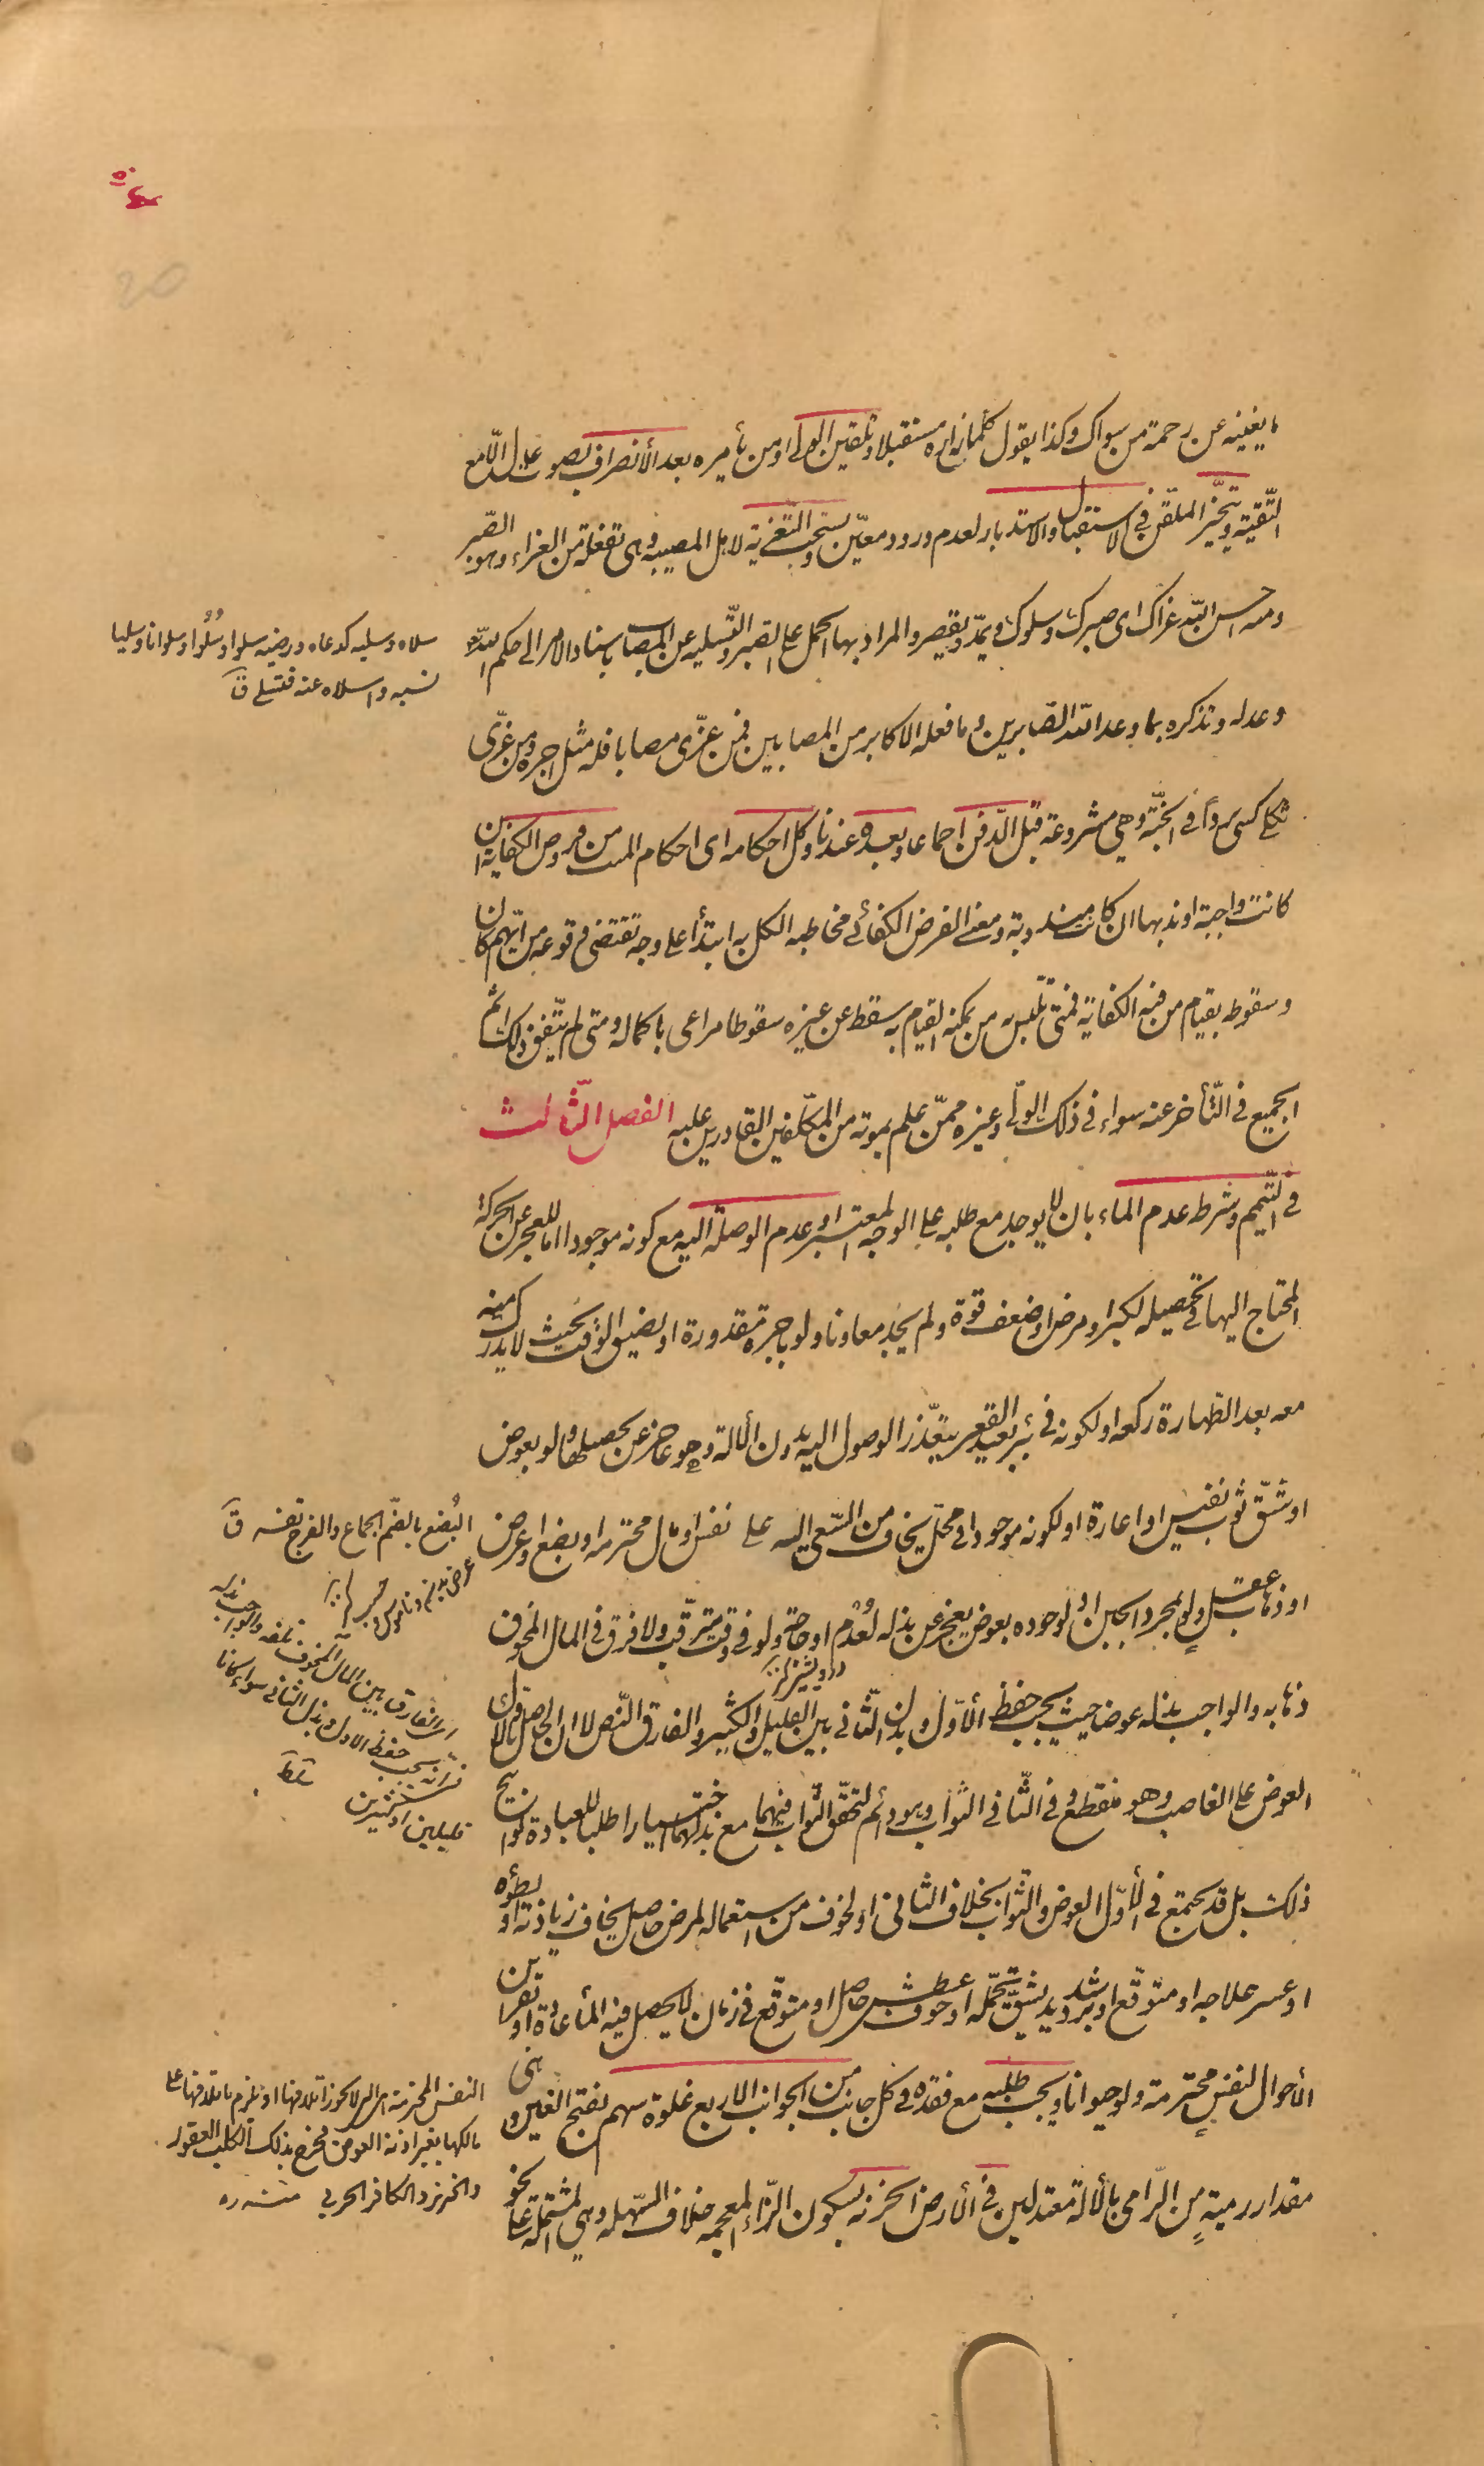 ما يغنيه عن رحمة من سواك وكذا يقول كلما زاره مستقبلا وتلقين الولي او من يأمره بعد الأنصراف بصوت عال الّا مع
التّقية ويتخيّر الملقّن في الاستقبال والاستدبار لعدم ورود معيّن ويستحبّ التّعزية لاهل المصيبه وهى تفعلة من العزاء وهو الصّبر
ومنه احسن اللّه عزاك اى صبرك وسلوك ويمدّ ويقصر والمراد بها الحمل على الصّبر والتّسليه عن المصاب باسناد الامر الى حكم اللّه
وعدله وتذكره بما وعد اللّه الصّابرين وما فعله الاكابر من المصابين فمن عزّى مصابا فله مثل اجره ومن عزّى
ثكلى كسى بردا في الجنّة وهي مشروعة قبل الدّفن اجماعا وبعده عندنا وكل احكامه اى احكام الميت من فروض الكفاية ان
كانت واجبة او ندبها ان كانت مندوبة ومعنى الفرض الكفائي مخاطبه الكل به ابتدأ على وجه تقتضى وقوعه من ايّهم كان
وسقوطه بقيام من فيه الكفاية فمتى تلبّس به من يمكنه القيام به سقط عن غيره سقوطا مراعى باكماله ومتى لم يتّفق ذلك اثم
الجميع في التّأخر عنه سواء في ذلك الولّى وغيره ممّن علم بموته من المكلّفين القادرين عليه الفصل الثّالث
في التّيمم وشرطه عدم الماء بان لا يوجد مع طلبه على الوجه المعتبر او عدم الوصلة اليه مع كونه موجودا اما للعجز عن الحركة
المحتاج اليها في تحصيله لكبر او مرض او ضعف قوة ولم يجد معاونا ولو باجرة مقدورة او لضيق الوقت بحيث لا يدرك منه
معه بعد الطّهارة ركعه او لكونه في بئر بعيد القعر يتعذّر الوصول اليه بدون الألالة وهو عاجز عن تحصيلها ولو بعوض
او شقّ ثوب نفيس او اعارة او لكونه موجودا في محلّ يخاف من السّعى اليه على نفس او مال محترمه او بضع او عرض
او ذهاب عقل ولو لمجرد الجبن او لوجوده بعوض يعجز عن بذله لعُدم او حاجة ولو في وقت مترقّب ولا فرق في المال المخوف
ذهابه والواجب بذله عوضا حيث يجب حفظ الأوّل وبذل الثّاني بين القليل والكثير والفارق النّص لا ان الحاصل بالأول
العوض على الغاصب وهو منقطع وفي الثّاني الثواب وهو دائم لتحقّق الثّواب فيهما مع بذلهما اختيارا طلبا للعبادة لو ابيح
ذلك بل قد يجتمع في الأوّل العوض والثّواب بخلاف الثاني او لخوف من استعماله لمرض حاصل يخاف زيادته او بطؤه
او عسر علاجه او متوقّع او برد شديد يشقّ تحمّله او خوف عطش حاصل او متوقّع في زمان لا يحصل فيه المأ عادة او بقرائن
الأحوال لنفس محترمة ولو حيوانا ويجب طلبه مع فقده في كل جانب من الجوانب الاربع غلوة سهم بفتح الغين وهى
مقدار رمية من الرّامى بالألالة معتدلين في الأرض الحزنه بسكون الزّاء المعجمه خلاف السّهله وهي المشتملة على نحو
سلاه وسليه كدعاه ورضيه سلوا وسُلُوا وسلوانا وسليا
نسيه واسلاه عنه فتسلى ق
البُضع بالضّم الجماع والفرج نفسه ق
النفس المحترمة التى لا يجوز اتلافها او يلزم باتلافها على
مالكها بغير اذنه العوض فخرج بذلك الكلب العقور
والخنزير والكافر الحربي